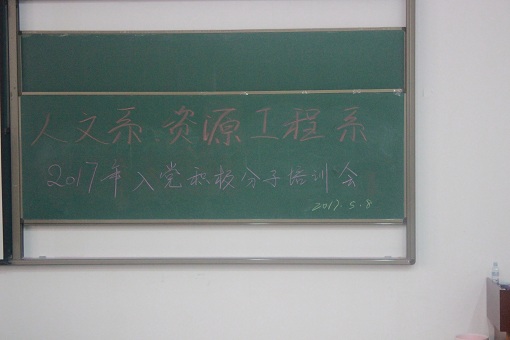 人文系、资源工程系
2017年入党积极分子培训会
2017.5.8